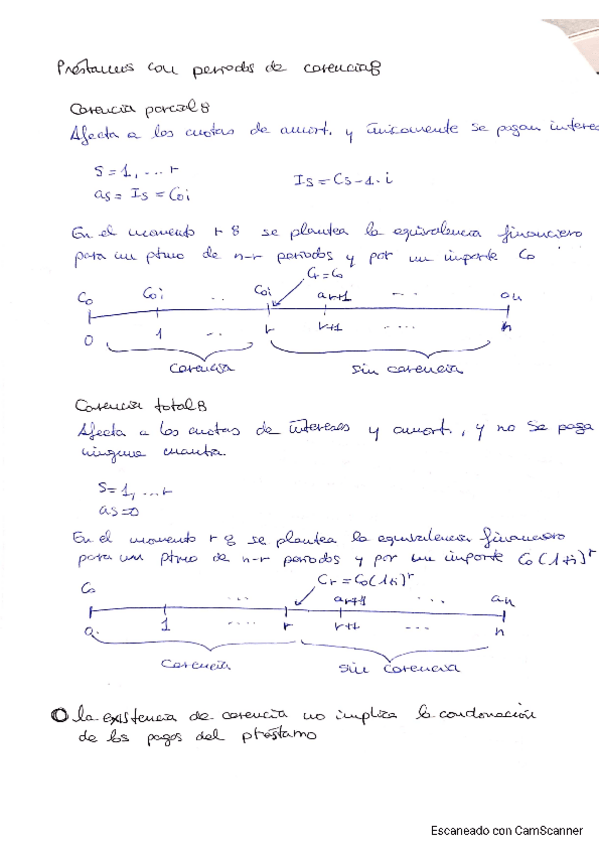 Préstamos con periodos de carencia:
Carencia parcial:
Afecta a las cuotas de amort. y únicamente se pagan interes
s = 1, ... r
as = Is = C0i
Is = Cs-1 · i
En el momento r : se plantea la equivalencia financiero
para un ptmo de n-r periodos y por un importe C0
Cr = C0
C0 C0i .. C0i ar+1 ... an
0 1 .. r r+1 .... n
Carencia sin carencia
Carencia total:
Afecta a las cuotas de intereses y amort., y no se paga
ninguna cuantía.
s = 1, ... r
as = 0
En el momento r : se plantea la equivalencia financiero
para un ptmo de n-r periodos y por un importe C0(1+i)^r
C0 ... Cr = C0(1+i)^r ar+1 ... an
0. 1 ... r r+1 ... n
Carencia sin carencia
la existencia de carencia no implica la condonación
de los pagos del préstamo
Escaneado con CamScanner